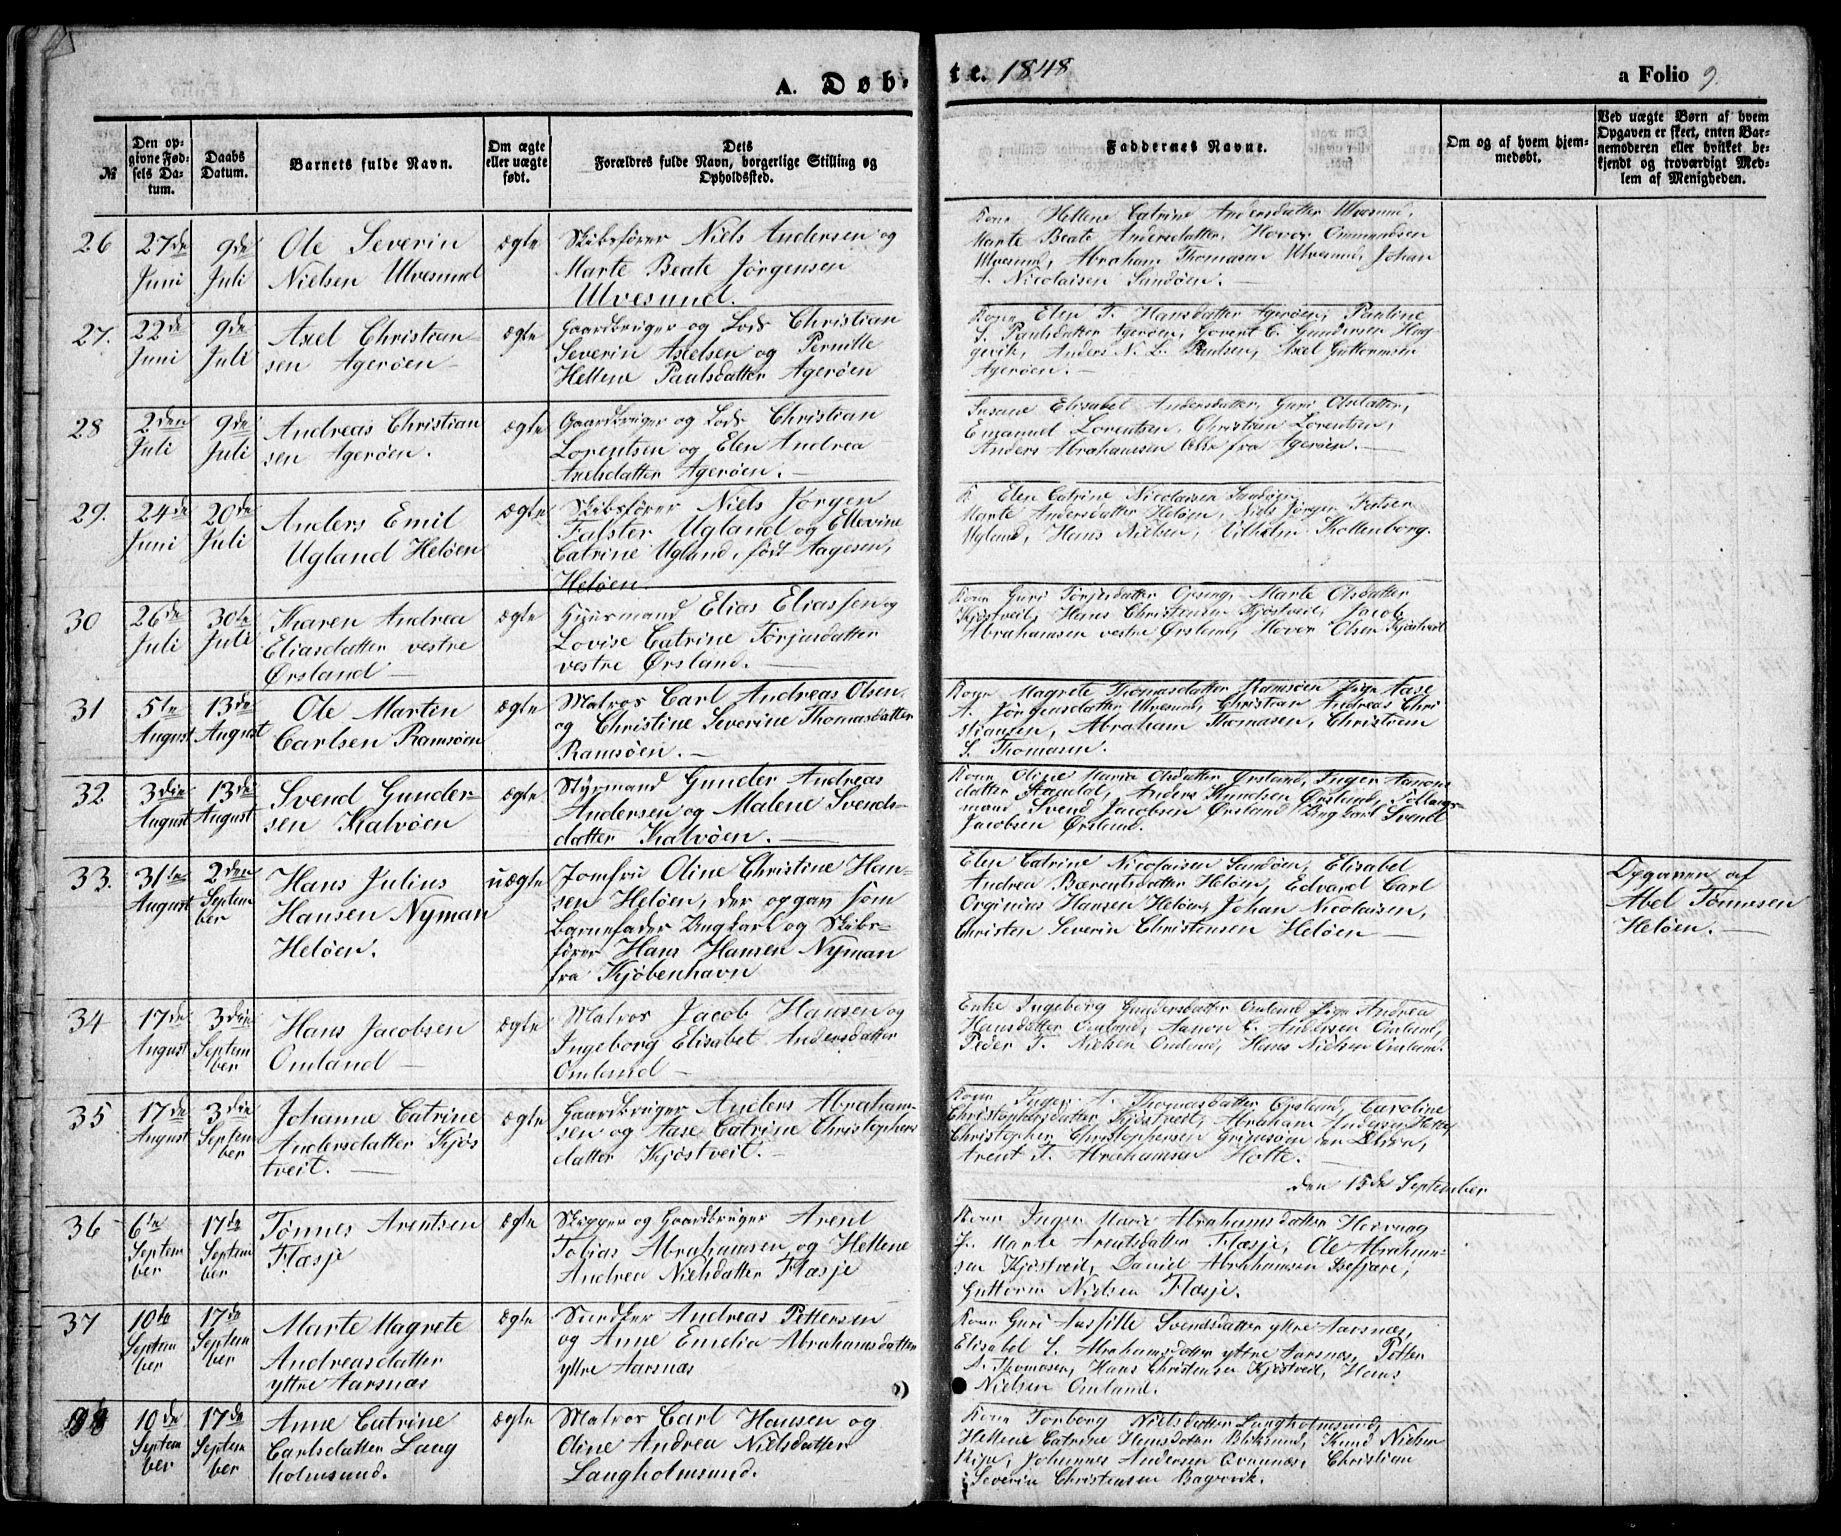 A. Døb-
te. 1848
a Folio 9.
№
Den op-
givne Fød-
sels Da-
tum.
Daabs
Datum.
Barnets fulde Navn.
Om ægte
eller uægte
født.
Dets
Forældres fulde Navn, borgerlige Stilling og
Opholdssted.
Faddernes Navne.
Om og af hvem hjem-
medøbt.
Ved uægte Børn af hvem
Opgaven er skeet, enten Bar-
nemoderen eller hvilket be-
kjendt og troværdigt Med-
lem af Menigheden.
26
27de
Juni
9de
Juli
Ole Severin
Nielsen Ulvesund
ægte
Skibsfører Niels Andersen og
Marte Beate Jørgensen
Ulvesund.
Kone Hellene Catrine Andersdatter Ulvesund,
Marte Beate Andersdatter, Hovor Ommundsen
Ulvesund, Abraham Thomasen Ulvesund, Johan
A. Nicolaisen Sandøen.
27.
22de
Juni
9de
Juli
Axel Christian-
sen Agerøen
ægte
Gaardbruger og Lods Christian
Severin Axelsen og Pernille
Hellene Paulsdatter Agerøen
Kone Elen T. Hansdatter Agerøen, Pauline
S. Paulsdatter Agerøen, Govert C. Gundersen Hæg
gevik, Anders N. L. Paulsen, Axel Guttormsen
Agerøen.
28
2den
Juli
9de
Juli
Andreas Christian
sen Agerøen.
ægte
Gaardbruger og Lods Christian
Lorentsen og Elen Andrea
Axelsdatter Agerøen.
Susane Elisabet Andersdatter, Guri Olsdatter,
Emanuel Lorentsen, Christian Lorentsen,
Anders Abrahamsen alle fra Agerøen.
29.
24de
Juni
20de
Juli
Anders Emil
Ugland Heløen
ægte
Skibsfører Niels Jørgen
Falster Ugland og Ellevine
Catrine Ugland, født Aagesen,
Heløen
K. Elen Catrine Nicolaisen Sandøen
Marte Andersdatter Heløen, Niels Jørgen Falser
Ugland, Hans Nielsen, Vilhelm Thottenborg.
30
26de
Juli
30te
Juli
Karen Andrea
Eliasdatter vestre
Ørsland
ægte
Elias Eliassen og
Lovise Catrine Torjusdatter
vestre Ørsland.
Kone Guri Torjusdatter Marte Olsdatter
Kjøstveit, Hans Christensen Kjøstveit, Jacob
Abrahamsen vestre Ørsland, Hovor Olsen Kjøstveit
31
5te
August
13de
August
Ole Martin
Carlsen Ramsøen
ægte
Matros Carl Andreas Olsen
og Christine Severine Thomasdatter
Ramsøen.
Kone Magrete Thomasdatter Ramsøen Pige Aase
A. Jørgensdatter Ulvesund, Christian Andreas Chri
stiansen, Abraham Thomasen, Christian
S. Thomasen.
32
3die
August
13de
August
Svend Gunder-
sen Kalvøen
ægte
Styrmand Gunder Andreas
Andersen og Malene Svends-
datter Kalvøen.
Kone Oline Maria Olsdatter Ørsland, Inger Aanons
datter Anders Knudsen Ørsland,
mand Svend Jacobsen Ørsland Ungkarl Svend
Jacobsen Ørsland.
33.
31te
August
2den
Septem
ber
Hans Julius
Hansen Nyman
Heløen.
uægte
Jomfru Oline Christine Han-
sen Heløen, der opgav som
Barnefader Ungkarl og Skibs-
fører Hans Hansen Nyman
fra Kjøbenhavn
Elen Catrine Nicolaisen Sandøen, Elisabet
Andrea Bærentsdatter Heløen, Edvard Carl
Orginius Hansen Heløen, Johan Nicolaisen,
Christen Severin Christensen Heløen
Opgaven af
Abel Tønnesen
Heløen.
34
17de
August
3die
Septem
ber
Hans Jacobsen
Omland
ægte
Matros Jacob Hansen og
Ingeborg Elisabet Andersdatter
Omland
Enke Ingeborg Gundersdatter Omland Pige Andrea
Hansdatter Omland, Aanon C. Andersen Omland,
Peder T. Nielsen Omland, Hans Nielsen Omland.
35
17de
August
3die
Septem
ber
Johanne Catrine
Andersdatter Kjøs
tveit.
ægte
Gaardbruger Anders Abraham-
sen og Aase Catrine Christophers
datter Kjøstveit.
Kone Inger A. Thomasdatter Ørsland, Caroline
Christophersdatter Kjøstveit, Abraham Andersen Hotte,
Christopher Christophersen Grimsøen
Arent T. Abrahamsen Hotte.
den 15de September
36
6te
Septem
ber
17de
Septem
ber
Tønnes Arentsen
Flasje
ægte
Skipper og Gaardbruger Arent
Tobias Abrahamsen og Hellene
Andrea Nielsdatter Flasje
Kone Inger Marie Abrahamsdatter Hovaag
P. Marte Arentsdatter Flasje, Ole Abraham-
sen Kjøstveit, David Abrahamsen
Guttorm Nielsen Flasje.
37
10de
Septem
ber
17de
Septem
ber
Marte Magrete
Andreasdatter
yttre Aarsnæs
ægte
Snedker Andreas Pettersen
og Anne Emelia Abrahamsdatter
yttre Aarsnæs
Kone Guri Aasille Svendsdatter yttre Aarsnæs,
Elisabel S. Abrahamsdatter yttre Aarsnæs, Petter
A. Thomasen, Hans Christensen Kjøstveit, Hans
Nielsen Omland.
38
10de
Septem
ber
17de
Septem
ber
Anne Catrine
Carlsdatter Lang
holmsund.
ægte
Matros Carl Hansen og
Oline Andrea Nielsdatter
Langholmsund.
Kone Torborg Nielsdatter Langholmsund,
Hellene Catrine Hansdatter Bliksund, Knud Nielsen
Johannes Andersen Christian
Severin Christensen Bagevik.